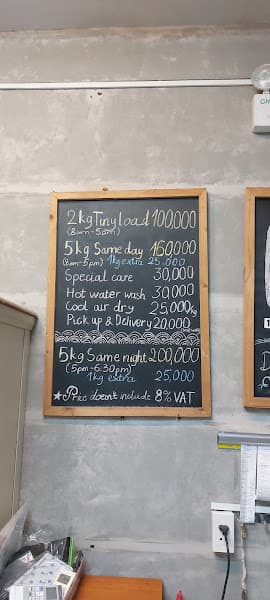 2kg Tiny load 100,000
(8am-5pm)
5kg Same day 160,000
(8am-5pm) 1kg extra 25.000
Special care 30,000
Hot water wash 30,000
Cool air dry 25,000/kg
Pick up & Delivery 20,000
5kg Same night 200,000
(5pm-6:30pm)
1kg extra 25,000
★ Price doesn't include 8% VAT